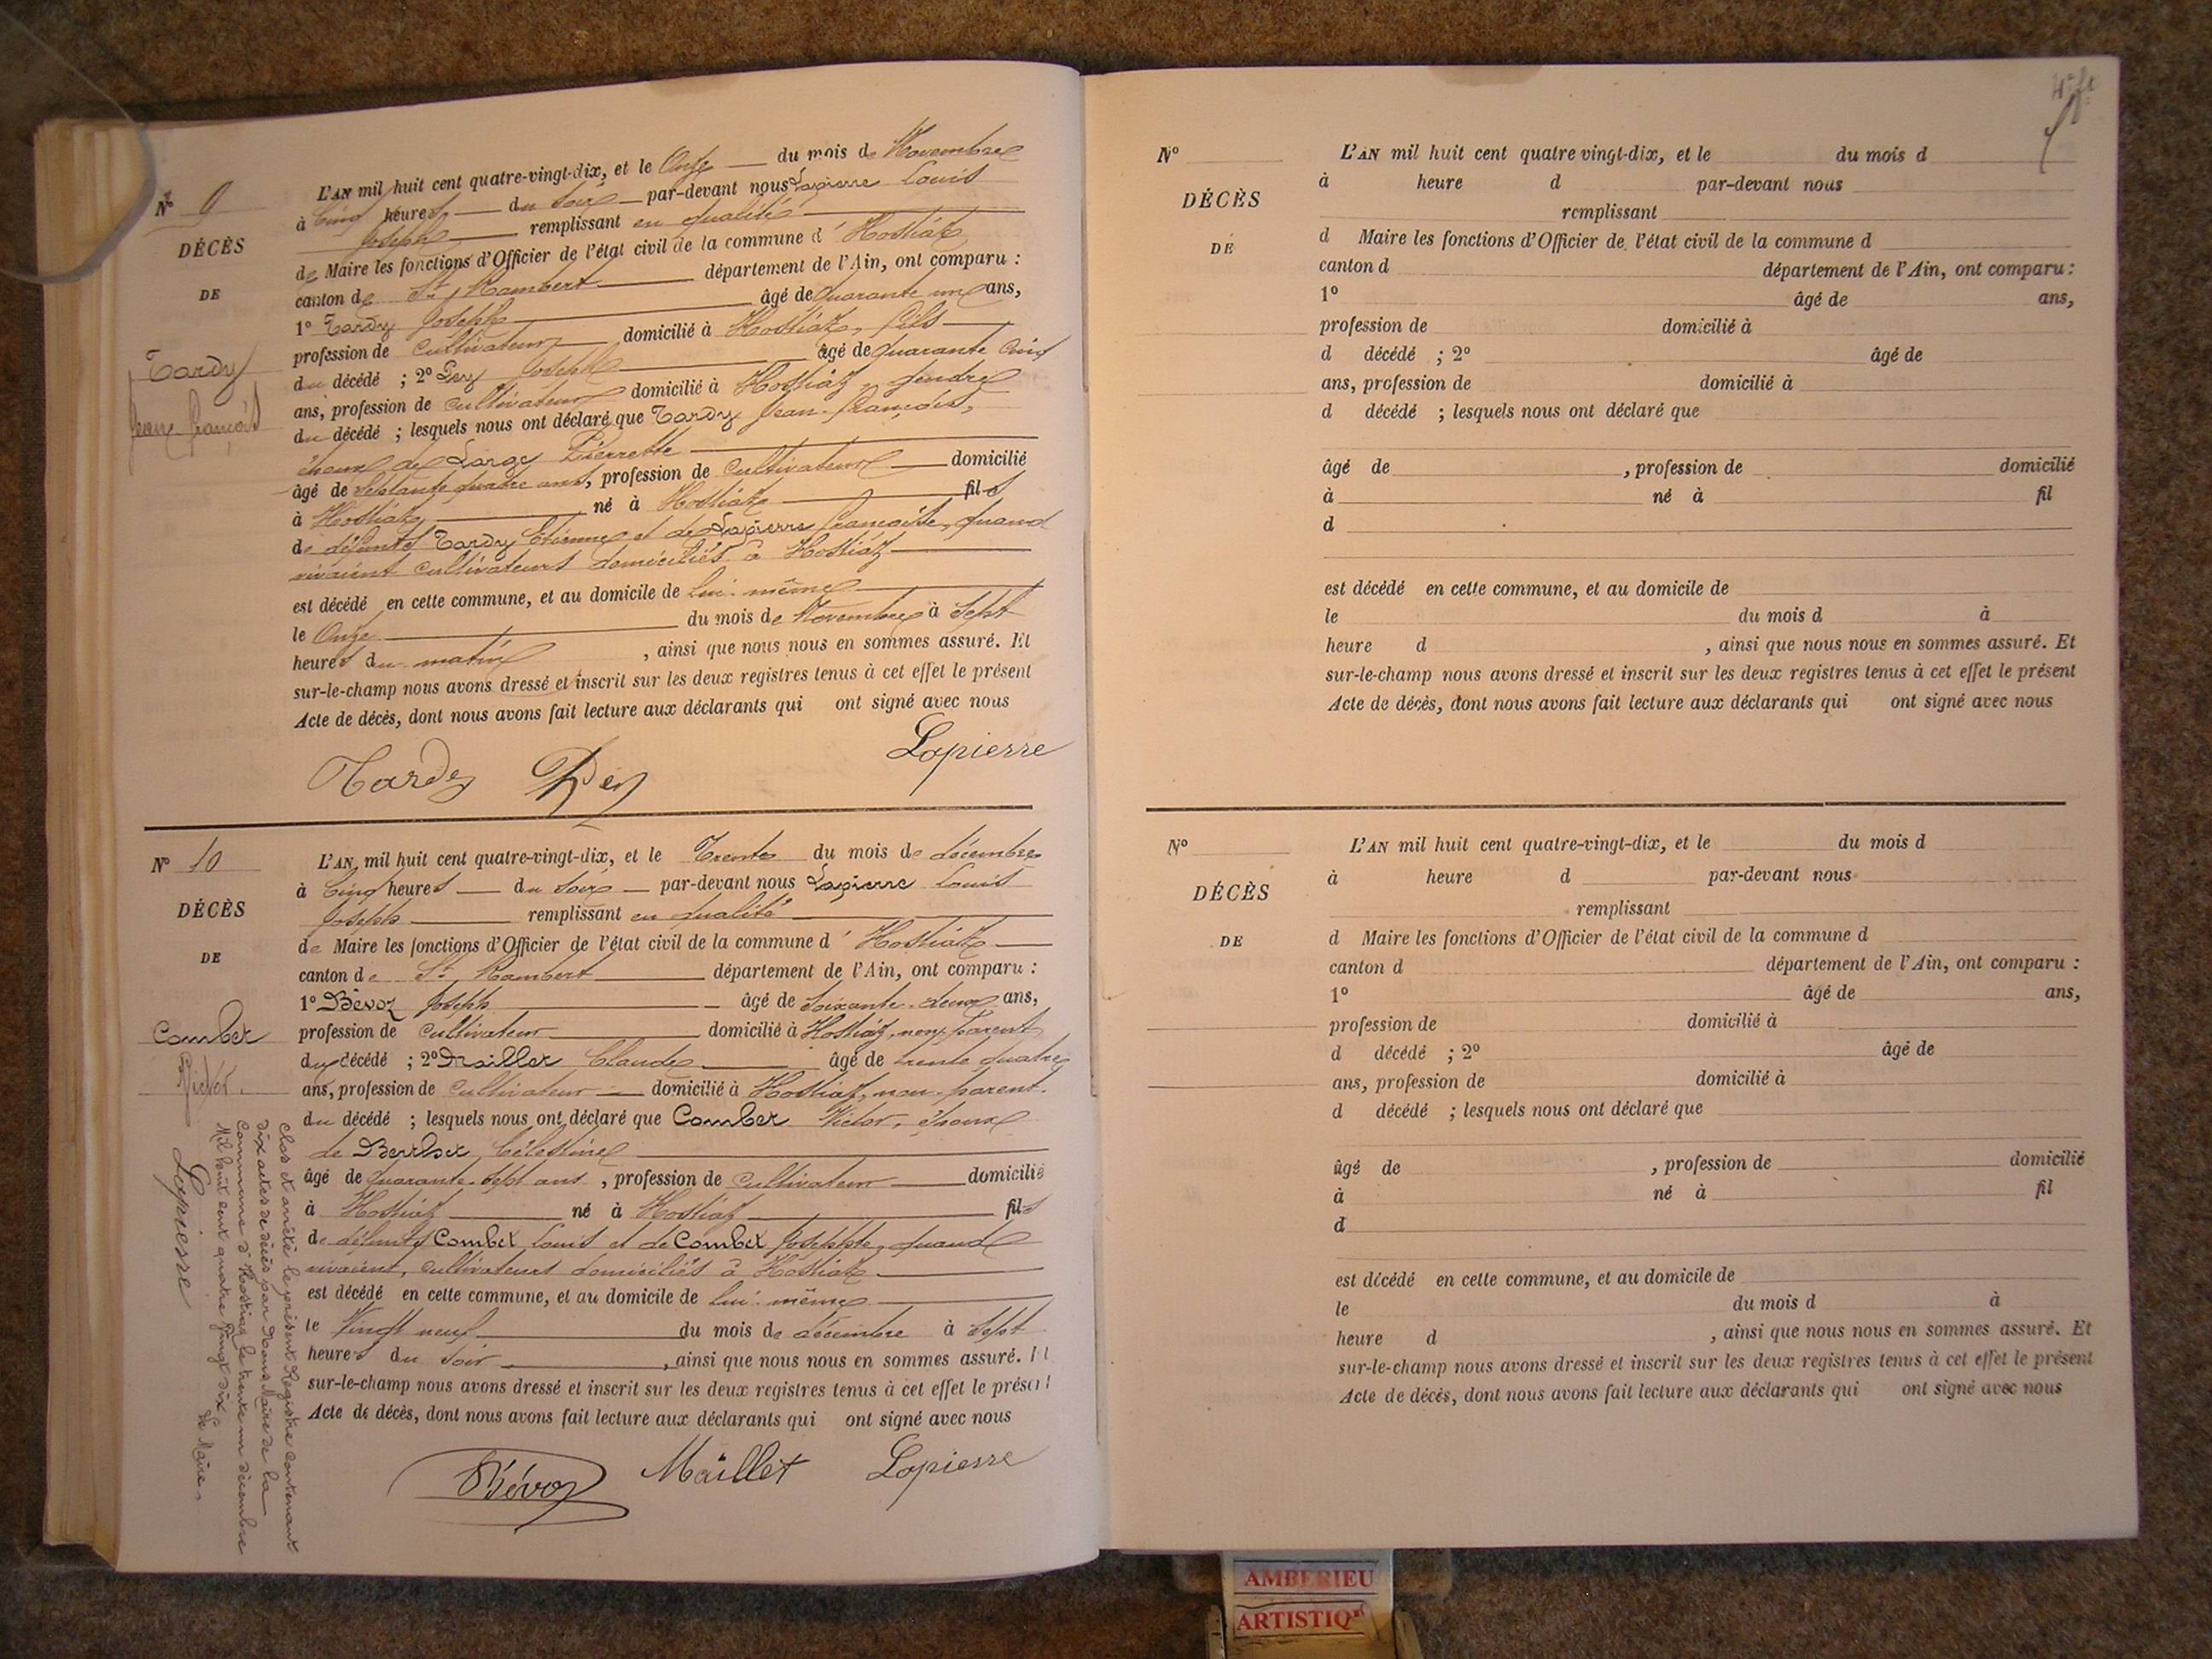 N° 9
DÉCÈS
DE
Tardy
Jean-François
L'AN mil huit cent quatre-vingt-dix, et le Onze du mois de Novembre
à Cinq heures du Soir par-devant nous Lapierre Louis
Joseph remplissant en qualité
de Maire les fonctions d'Officier de l'état civil de la commune d'Hostiaz
canton de St Rambert département de l'Ain, ont comparu :
1° Tardy Joseph âgé de quarante un ans,
profession de Cultivateur domicilié à Hostiaz, fils
du décédé ; 2° Pey Joseph âgé de quarante cinq
ans, profession de Cultivateur domicilié à Hostiaz, gendre
du décédé ; lesquels nous ont déclaré que Tardy Jean-François,
époux de Largy Pierrette
âgé de Septante quatre ans, profession de Cultivateur domicilié
à Hostiaz né à Hostiaz fils
de défunts Tardy Etienne et de Lapierre Françoise, quand
vivaient cultivateurs domiciliés à Hostiaz
est décédé en cette commune, et au domicile de Lui-même
le Onze du mois de Novembre à Sept
heures du matin , ainsi que nous nous en sommes assuré. Et
sur-le-champ nous avons dressé et inscrit sur les deux registres tenus à cet effet le présent
Acte de décès, dont nous avons fait lecture aux déclarants qui ont signé avec nous
Lapierre
Tardy Pey
N° 10
DÉCÈS
DE
Combet
Victor.
L'AN mil huit cent quatre-vingt-dix, et le Trente du mois de décembre
à Cinq heures du Soir par-devant nous Lapierre Louis
Joseph remplissant en qualité
de Maire les fonctions d'Officier de l'état civil de la commune d'Hostiaz
canton de St Rambert département de l'Ain, ont comparu :
1° Bévoz Joseph âgé de Soixante-deux ans,
profession de Cultivateur domicilié à Hostiaz, non parent
du décédé ; 2° Maillet Claude âgé de trente quatre
ans, profession de Cultivateur domicilié à Hostiaz, non-parent.
du décédé ; lesquels nous ont déclaré que Combet Victor, époux
de Berthet Célestine
âgé de quarante-Sept ans , profession de Cultivateur domicilié
à Hostiaz né à Hostiaz fils
de défunts Combet Louis et de Combet Josephte, quand
vivaient, cultivateurs domiciliés à Hostiaz
est décédé en cette commune, et au domicile de Lui-même
le Vingt neuf du mois de décembre à Sept
heures du Soir , ainsi que nous nous en sommes assuré. Et
sur-le-champ nous avons dressé et inscrit sur les deux registres tenus à cet effet le présent
Acte de décès, dont nous avons fait lecture aux déclarants qui ont signé avec nous
Bévoz Maillet Lapierre
Clos et arrêté le présent Registre contenant
dix actes de décès par Nous Maire de la
Commune d'Hostiaz le trente un décembre
Mil huit cent quatre Vingt dix
Le Maire.
Lapierre
N°
DÉCÈS
DE
L'AN mil huit cent quatre vingt-dix, et le du mois d
à heure d par-devant nous
remplissant
d Maire les fonctions d'Officier de l'état civil de la commune d
canton d département de l'Ain, ont comparu :
1° âgé de ans,
profession de domicilié à
d décédé ; 2° âgé de
ans, profession de domicilié à
d décédé ; lesquels nous ont déclaré que
âgé de , profession de domicilié
à né à fil
d
est décédé en cette commune, et au domicile de
le du mois d à
heure d , ainsi que nous nous en sommes assuré. Et
sur-le-champ nous avons dressé et inscrit sur les deux registres tenus à cet effet le présent
Acte de décès, dont nous avons fait lecture aux déclarants qui ont signé avec nous
N°
DÉCÈS
DE
L'AN mil huit cent quatre-vingt-dix, et le du mois d
à heure d par-devant nous
remplissant
d Maire les fonctions d'Officier de l'état civil de la commune d
canton d département de l'Ain, ont comparu :
1° âgé de ans,
profession de domicilié à
d décédé ; 2° âgé de
ans, profession de domicilié à
d décédé ; lesquels nous ont déclaré que
âgé de , profession de domicilié
à né à fil
d
est décédé en cette commune, et au domicile de
le du mois d à
heure d , ainsi que nous nous en sommes assuré. Et
sur-le-champ nous avons dressé et inscrit sur les deux registres tenus à cet effet le présent
Acte de décès, dont nous avons fait lecture aux déclarants qui ont signé avec nous
AMBERIEU
ARTISTIQ